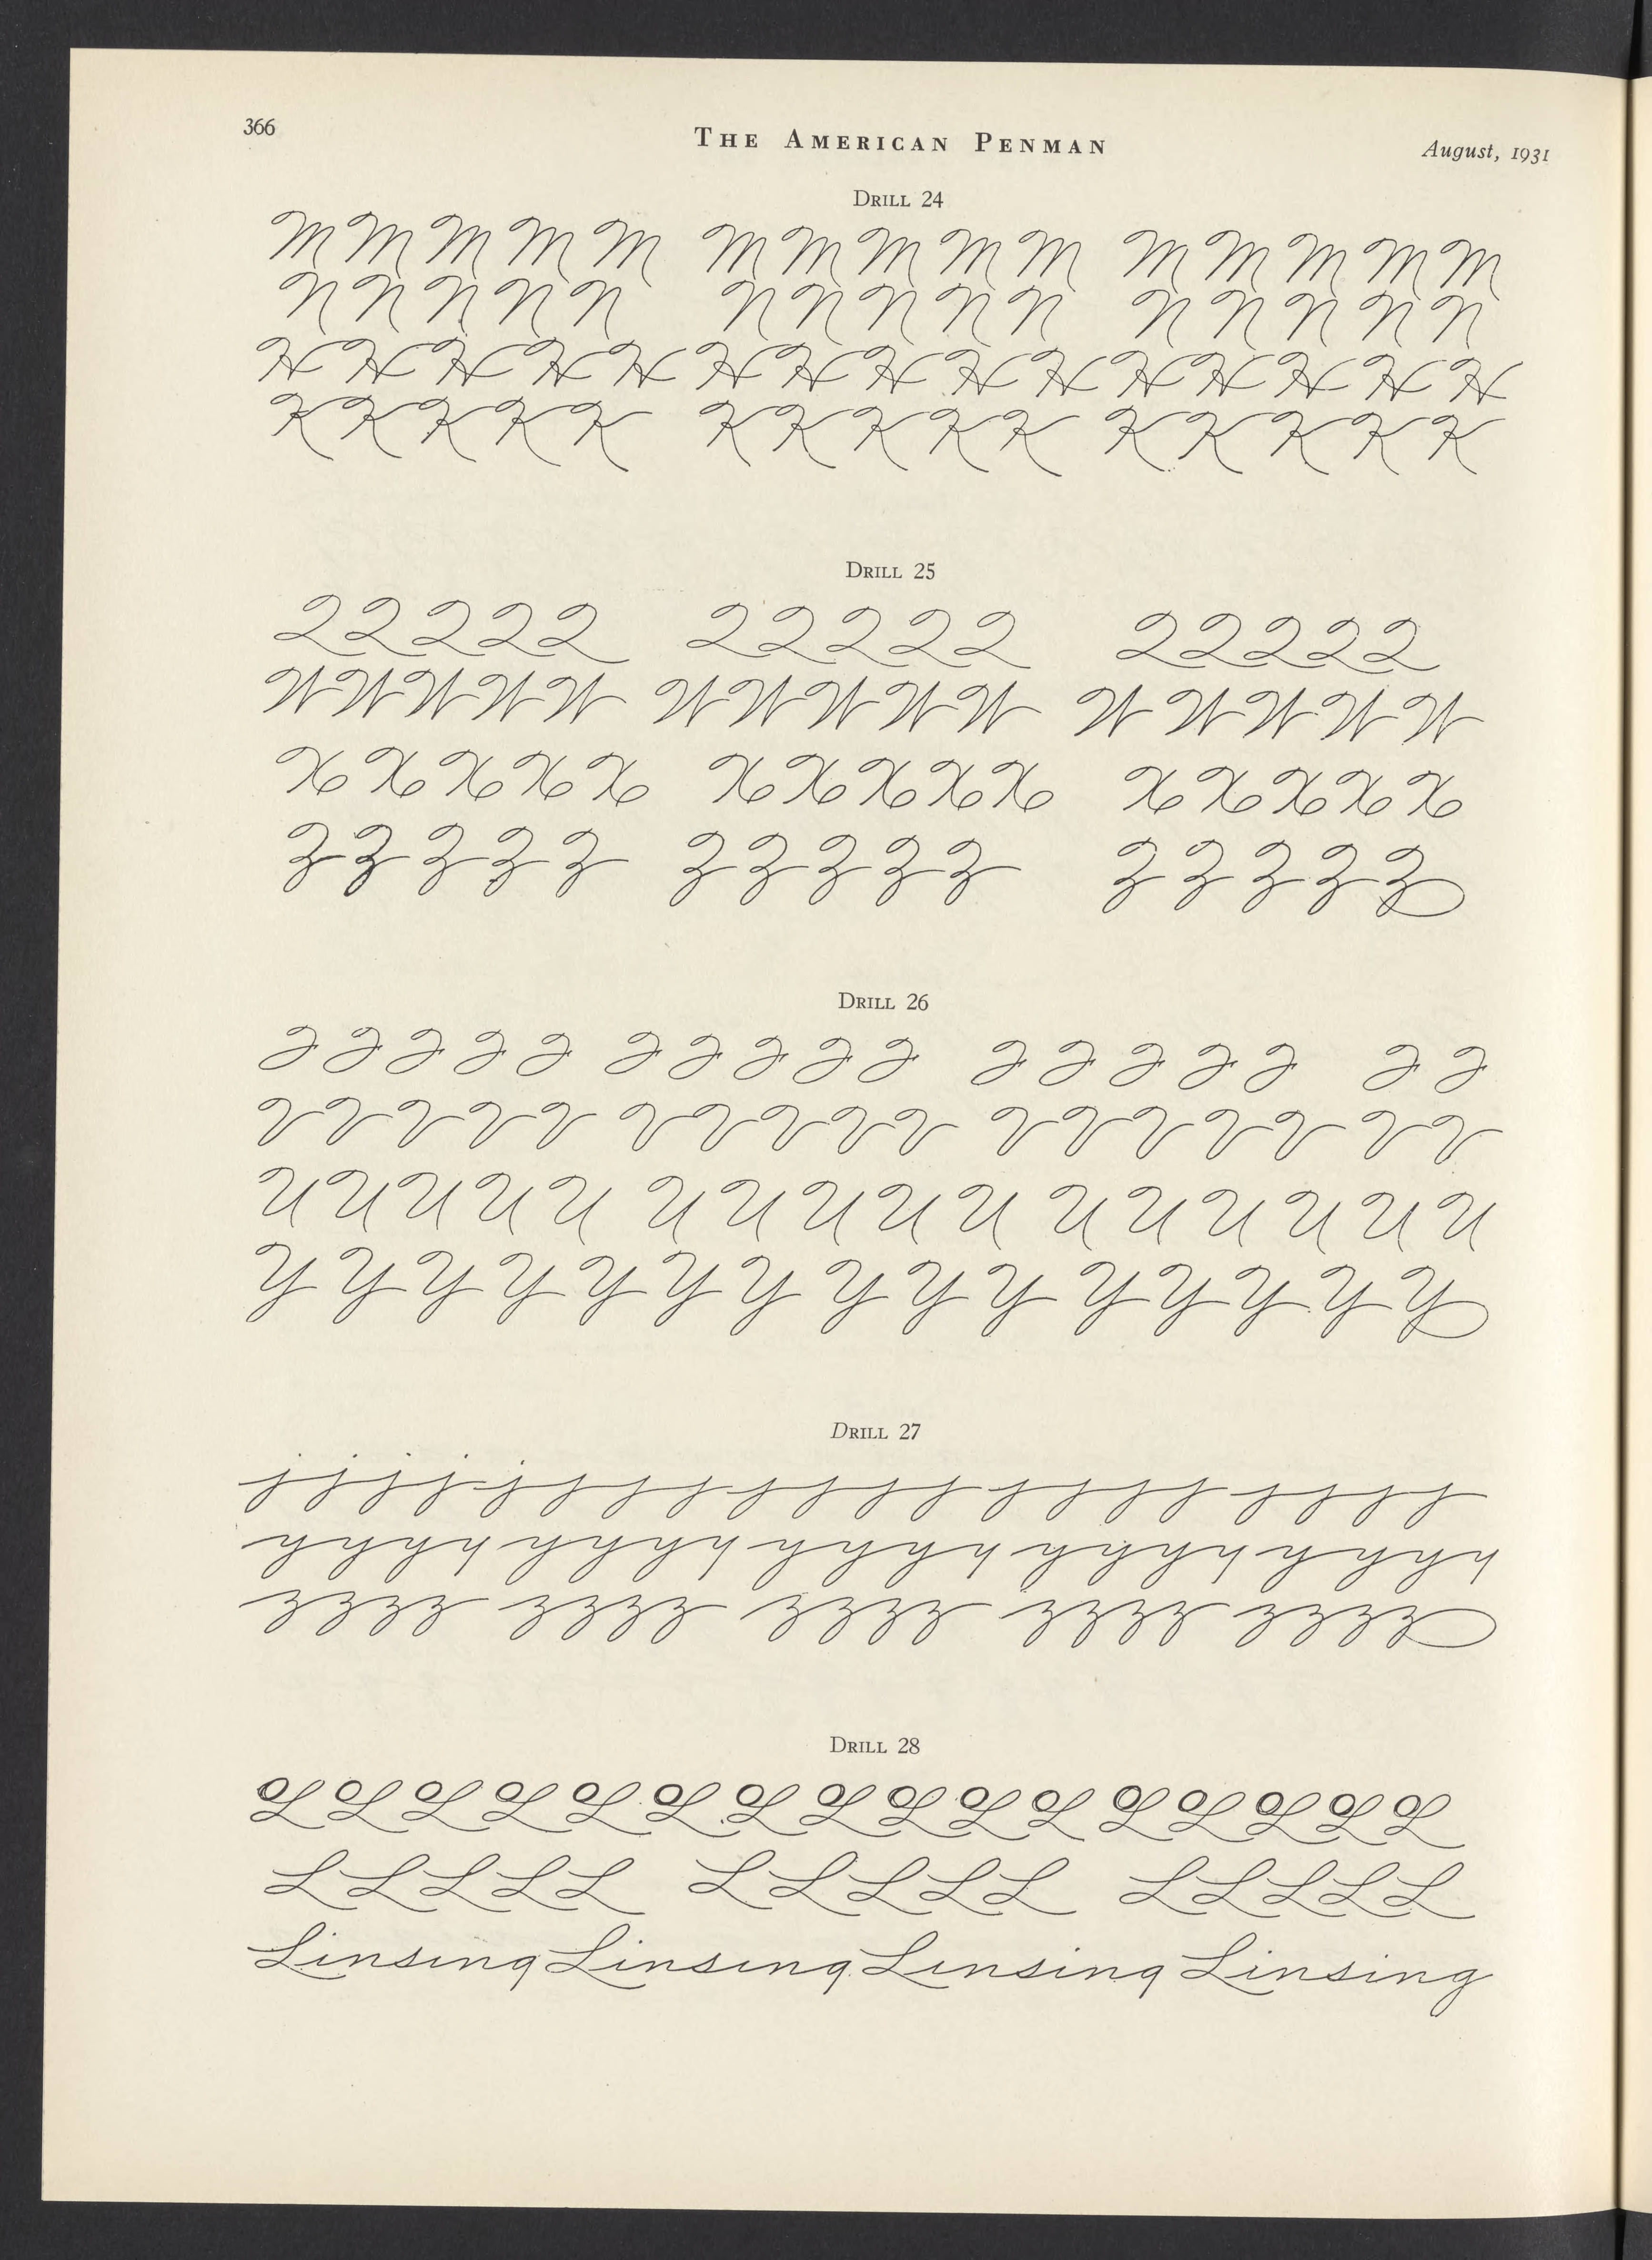 366
THE AMERICAN PENMAN
August, 1931
DRILL 24
M M M M M M M M M M M M M M M
N N N N N N N N N N N N N N N
H H H H H H H H H H H H H H H
K K K K K K K K K K K K K K K
DRILL 25
Q Q Q Q Q Q Q Q Q Q Q Q Q Q Q
W W W W W W W W W W W W W W W
X X X X X X X X X X X X X X X
Z Z Z Z Z Z Z Z Z Z Z Z Z Z Z
DRILL 26
V V V V V V V V V V V V V V V V V
U U U U U U U U U U U U U U U U
Y Y Y Y Y Y Y Y Y Y Y Y Y Y Y
DRILL 27
j j j j j j j j j j j j j j j j j j j j
y y y y y y y y y y y y y y y y y y y y
z z z z z z z z z z z z z z z z z z z z
DRILL 28
L L L L L L L L L L L L L L L L
L L L L L L L L L L L L L L L
Linsing Linsing Linsing Linsing